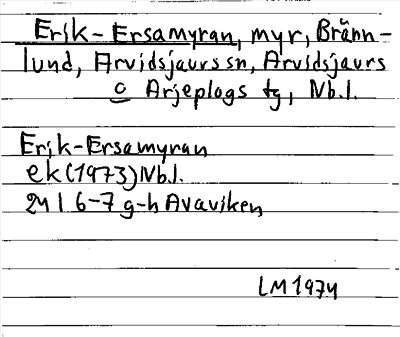 Erik-Ersamyran, myr, Bränn-
lund, Arvidsjaurs sn, Arvidsjaurs
o Arjeplogs tg, Nb.l.
Erik-Ersamyran
ek (1973) Nb.l.
24 I 6-7 g-h Avaviken
LM 1974